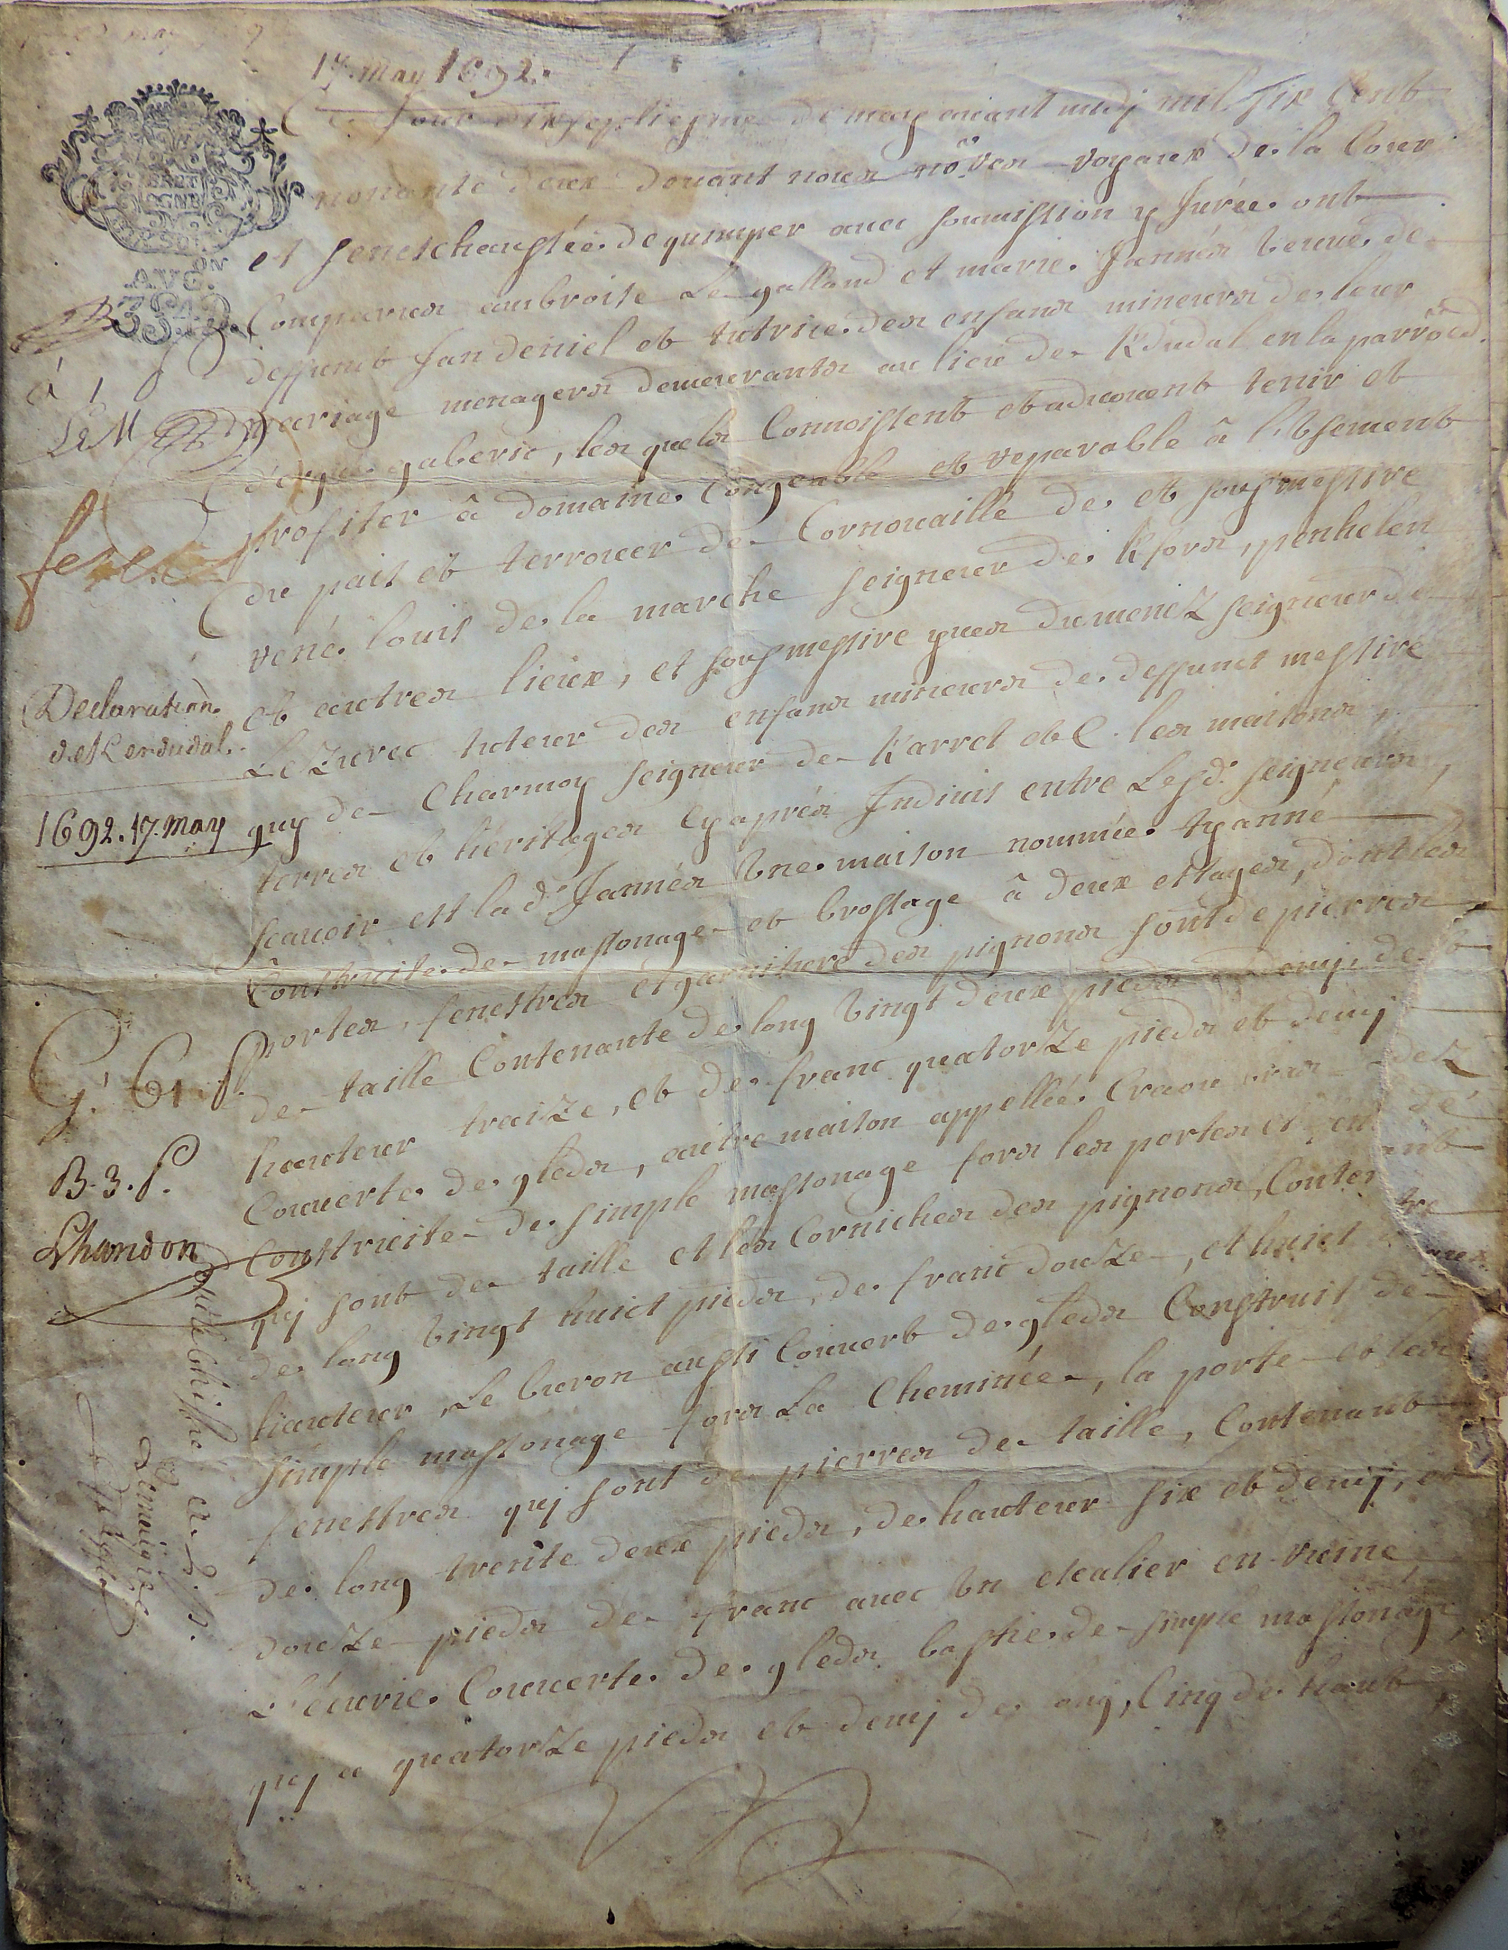 17. may 1692.
Ce Jour dixseptiesme de may avant midj mil six Cent
nonante deux devant nous nores royaux de la Cour
et seneschaussée de quimper avec soumission y Jurée ont
Comparus ambroise Le galland et marie Jannés veuve de
deffunct Jan deniel et tutrice des enfans mineurs de leur
mariage menagers demeurants au lieu de K/dudal en la parroesse
d'ergué gaberic, les quels Connoissent et advouent tenir et
profiter â domaine Congeable et reparable â l'Usement
du pais et terrouer de Cornouaille de et sous messire
rené louis de la marche seigneur de K/fors, penhelen
et autres lieux, et sous messire yves du menez seigneur de
Lezurec tuteur des enfans mineurs de deffunct messire
guy de Charmoy seigneur de K/arret et C. les maisons,
terres et héritages Cy aprés Indivis entre Lesds. seigneurs,
scavoir est lad. Jannés Une maison nommée ty anné
Construite de massonage et brossage â deux estages, dont les
portes, fenestres et garniture des pignons sont de pierres
de taille Contenante de long vingt deux pieds et demj, de
hauteur traize, et de franc quatorze pieds et demj
Couverte de gleds, autre maison appellée Craou
Construite de simple massonage fors les portes et
quj sont de taille et les Corniches des pignons,
de long vingt huict pieds, de franc douze, et huict de
hauteur, Le buron aussi Couvert de gleds Construit de
simple massonage fors La Cheminée, la porte et les
fenestres quj sont de pierres de taille, Contenant
de long trente deux pieds, de hauteur six et demj, et
douze pieds de franc avec Un escalier en ruine,
L'écurie Couverte de gleds bastie de simple massonage,
quj a quatorze pieds et demj de long, Cinq de haut,
BRET
AGNE
AVG.
à 1 s
LeM
Declaration
de Kerdudal.
1692. 17. may
G. 61. s.
B. 3. s.
Lhandon